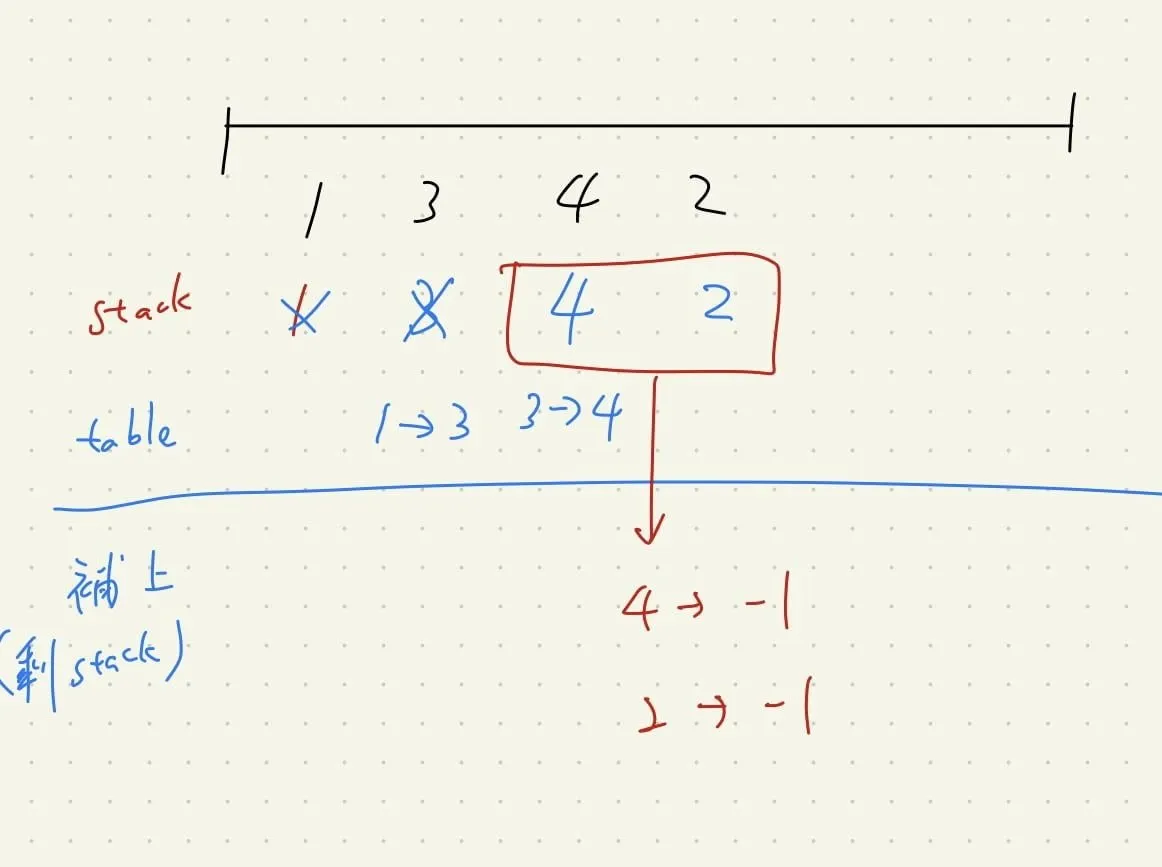 1 3 4 2
stack 1 3 4 2
table 1→3 3→4
補上
(剩stack)
4→-1
2→-1